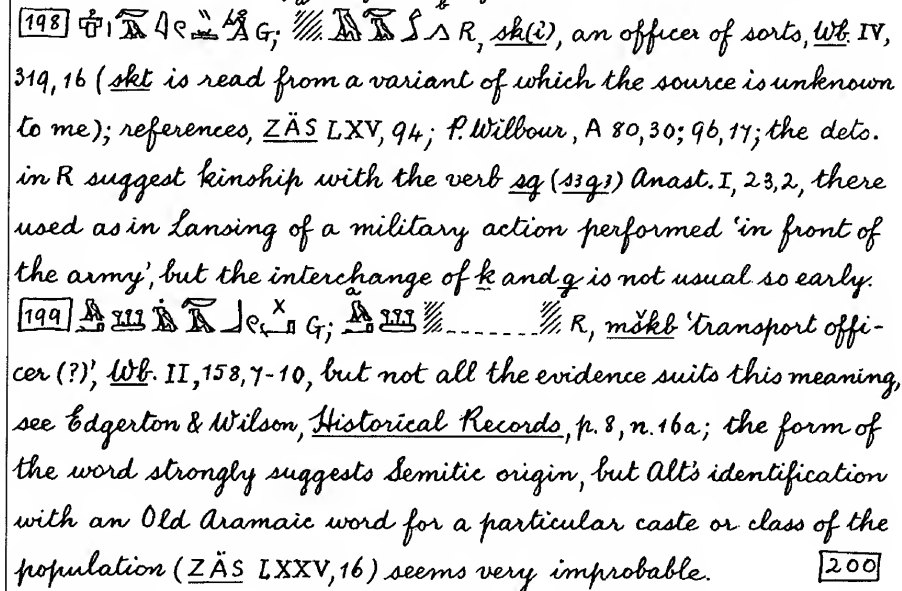 198 G; R, sk(i), an officer of sorts, Wb. IV,
319, 16 (skt is read from a variant of which the source is unknown
to me); references, ZÄS LXV, 94; P. Wilbour, A 80, 30; 96, 17; the dets.
in R suggest kinship with the verb sg (sꜣgꜣ) Anast. I, 23, 2, there
used as in Lansing of a military action performed 'in front of
the army', but the interchange of k and g is not usual so early.
199 G; R, mškb 'transport offi-
cer (?)', Wb. II, 158, 7-10, but not all the evidence suits this meaning,
see Edgerton & Wilson, Historical Records, p. 8, n. 16a; the form of
the word strongly suggests Semitic origin, but Alt's identification
with an Old Aramaic word for a particular caste or class of the
population (ZÄS LXXV, 16) seems very improbable. 200